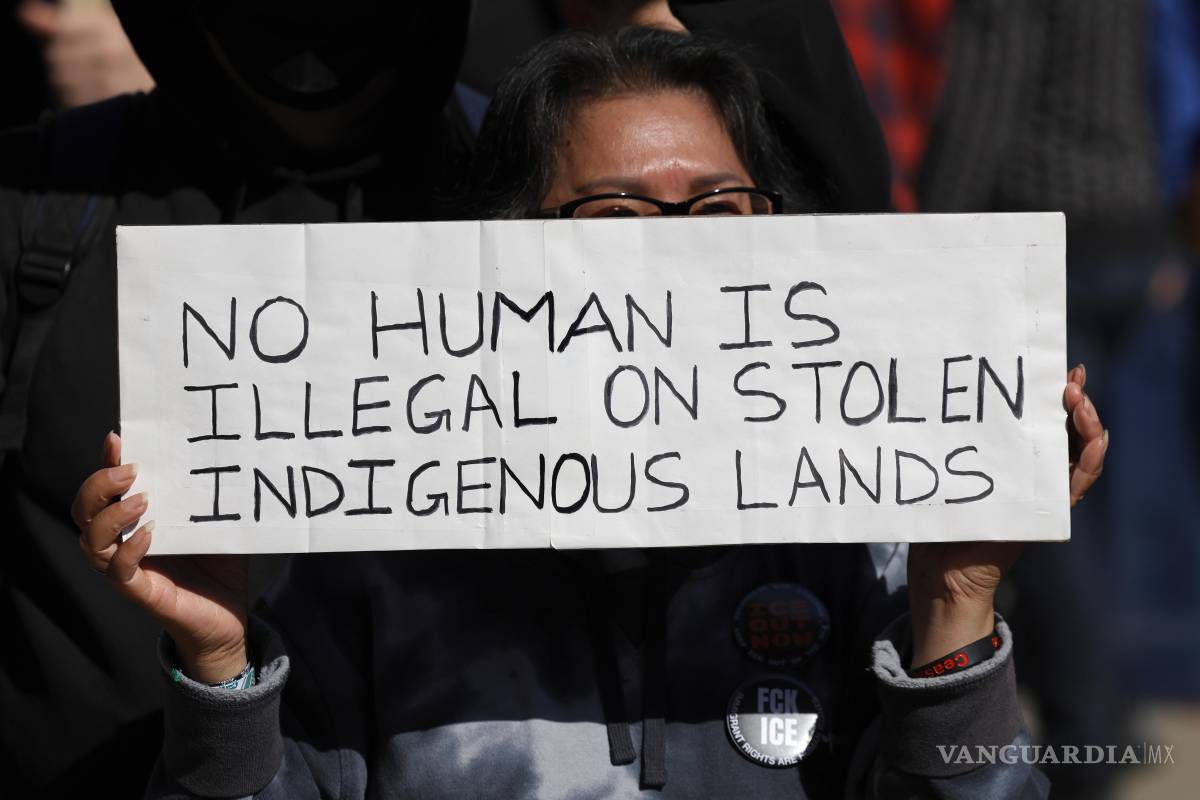 NO HUMAN IS
ILLEGAL ON STOLEN
INDIGENOUS LANDS
ICE
OUT
NOW
FCK
ICE
RIGHTS ARE
Ceas
VANGUARDIA|MX